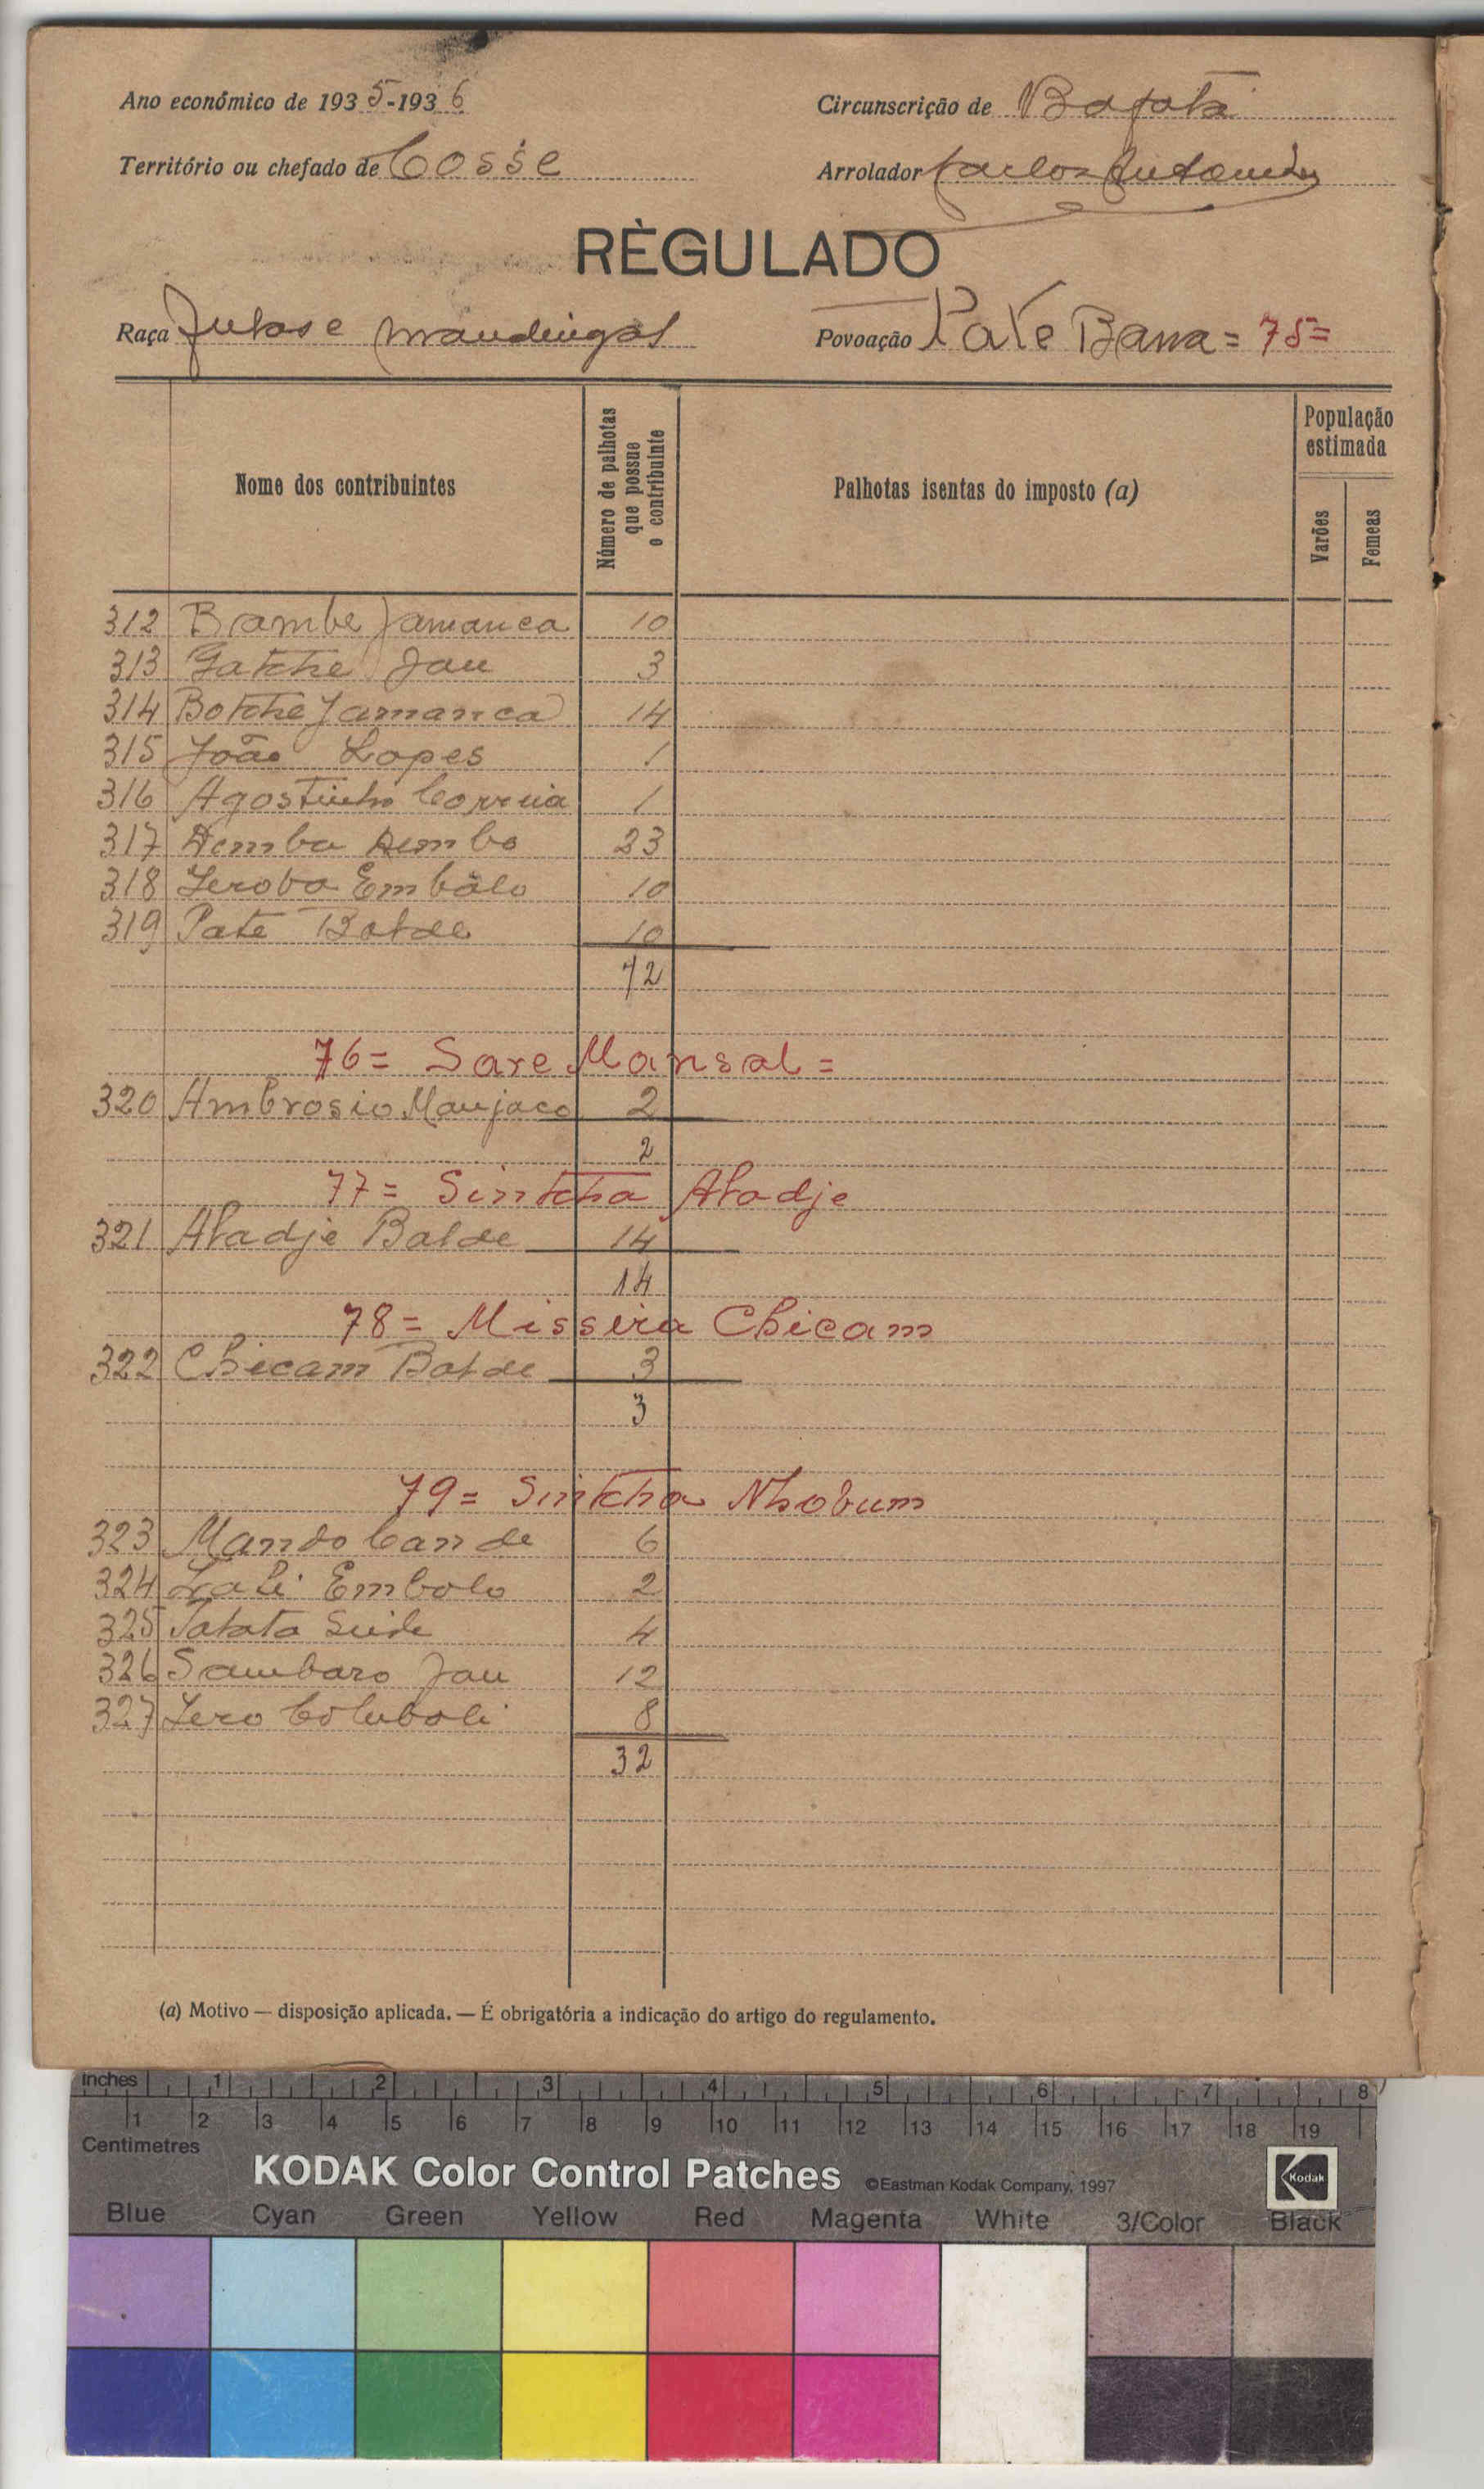 Ano económico de 1935-1936
Circunscrição de Bafatá
Território ou chefado de Cossé
Arrolador Carlos
RÈGULADO
Raça Fulas e Mandingas
Povoação Pate Bana = 75 =
Nome dos contribuintes
Número de palhotas que possue o contribuinte
Palhotas isentas do imposto (a)
População estimada
Varões
Femeas
312 Bambe Jamanca 10
313 Gatche Jau 3
314 Botche Jamanca 14
315 João Lopes 1
316 Agostinho Correia 1
317 Demba Dembo 23
318 Seroba Embalo 10
319 Pate Balde 10
72
76 = Sare Mansal =
320 Ambrosio Manjaco 2
2
77 = Sintcha Aladje
321 Aladje Balde 14
14
78 = Missira Chicam
322 Chicam Balde 3
3
79 = Sintcha Nhobum
323 Mando Cande 6
324 Lali Embalo 2
325 Tatata Seide 4
326 Sambaro Jau 12
327 Sero 8
32
(a) Motivo — disposição aplicada. — É obrigatória a indicação do artigo do regulamento.
Inches 1 2 3 4 5 6 7 8
1 2 3 4 5 6 7 8 9 10 11 12 13 14 15 16 17 18 19
Centimetres
KODAK Color Control Patches ©Eastman Kodak Company, 1997 Kodak
Blue Cyan Green Yellow Red Magenta White 3/Color Black